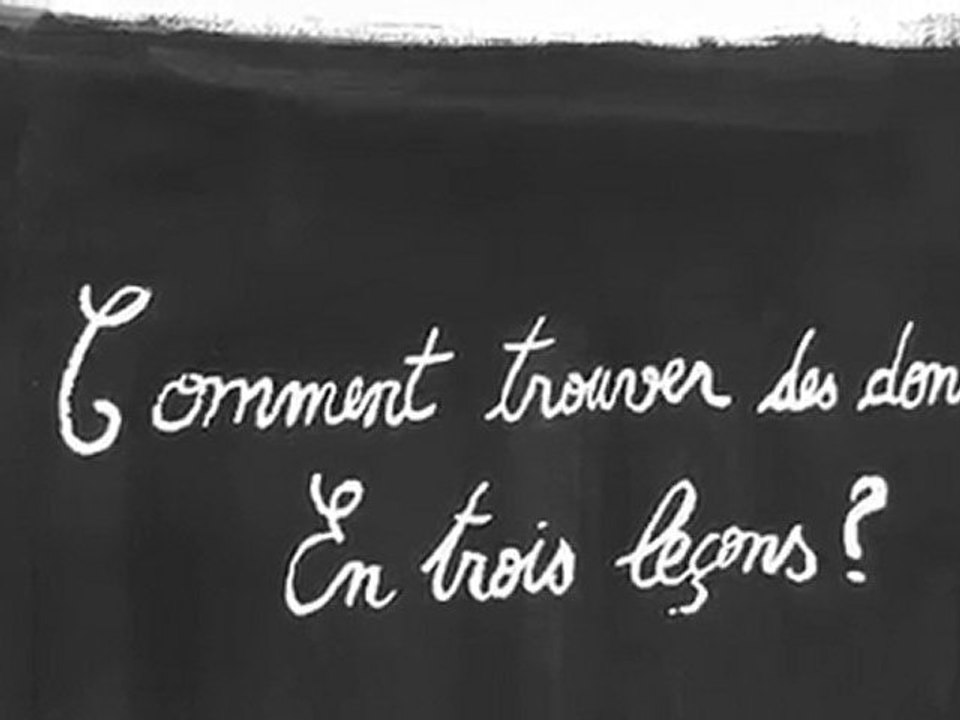 Comment trouver des don
En trois leçons ?